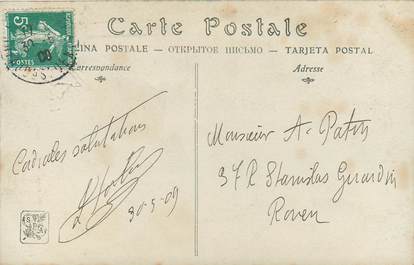 Carte Postale
INA POSTALE — ОТКРЫТОЕ ПИСЬМО — TARJETA POSTAL
Correspondance
Adresse
5
POSTES
Cordiales salutations
30-5-09
Monsieur A. Paton
37 R Stanislas Girardin
Rouen